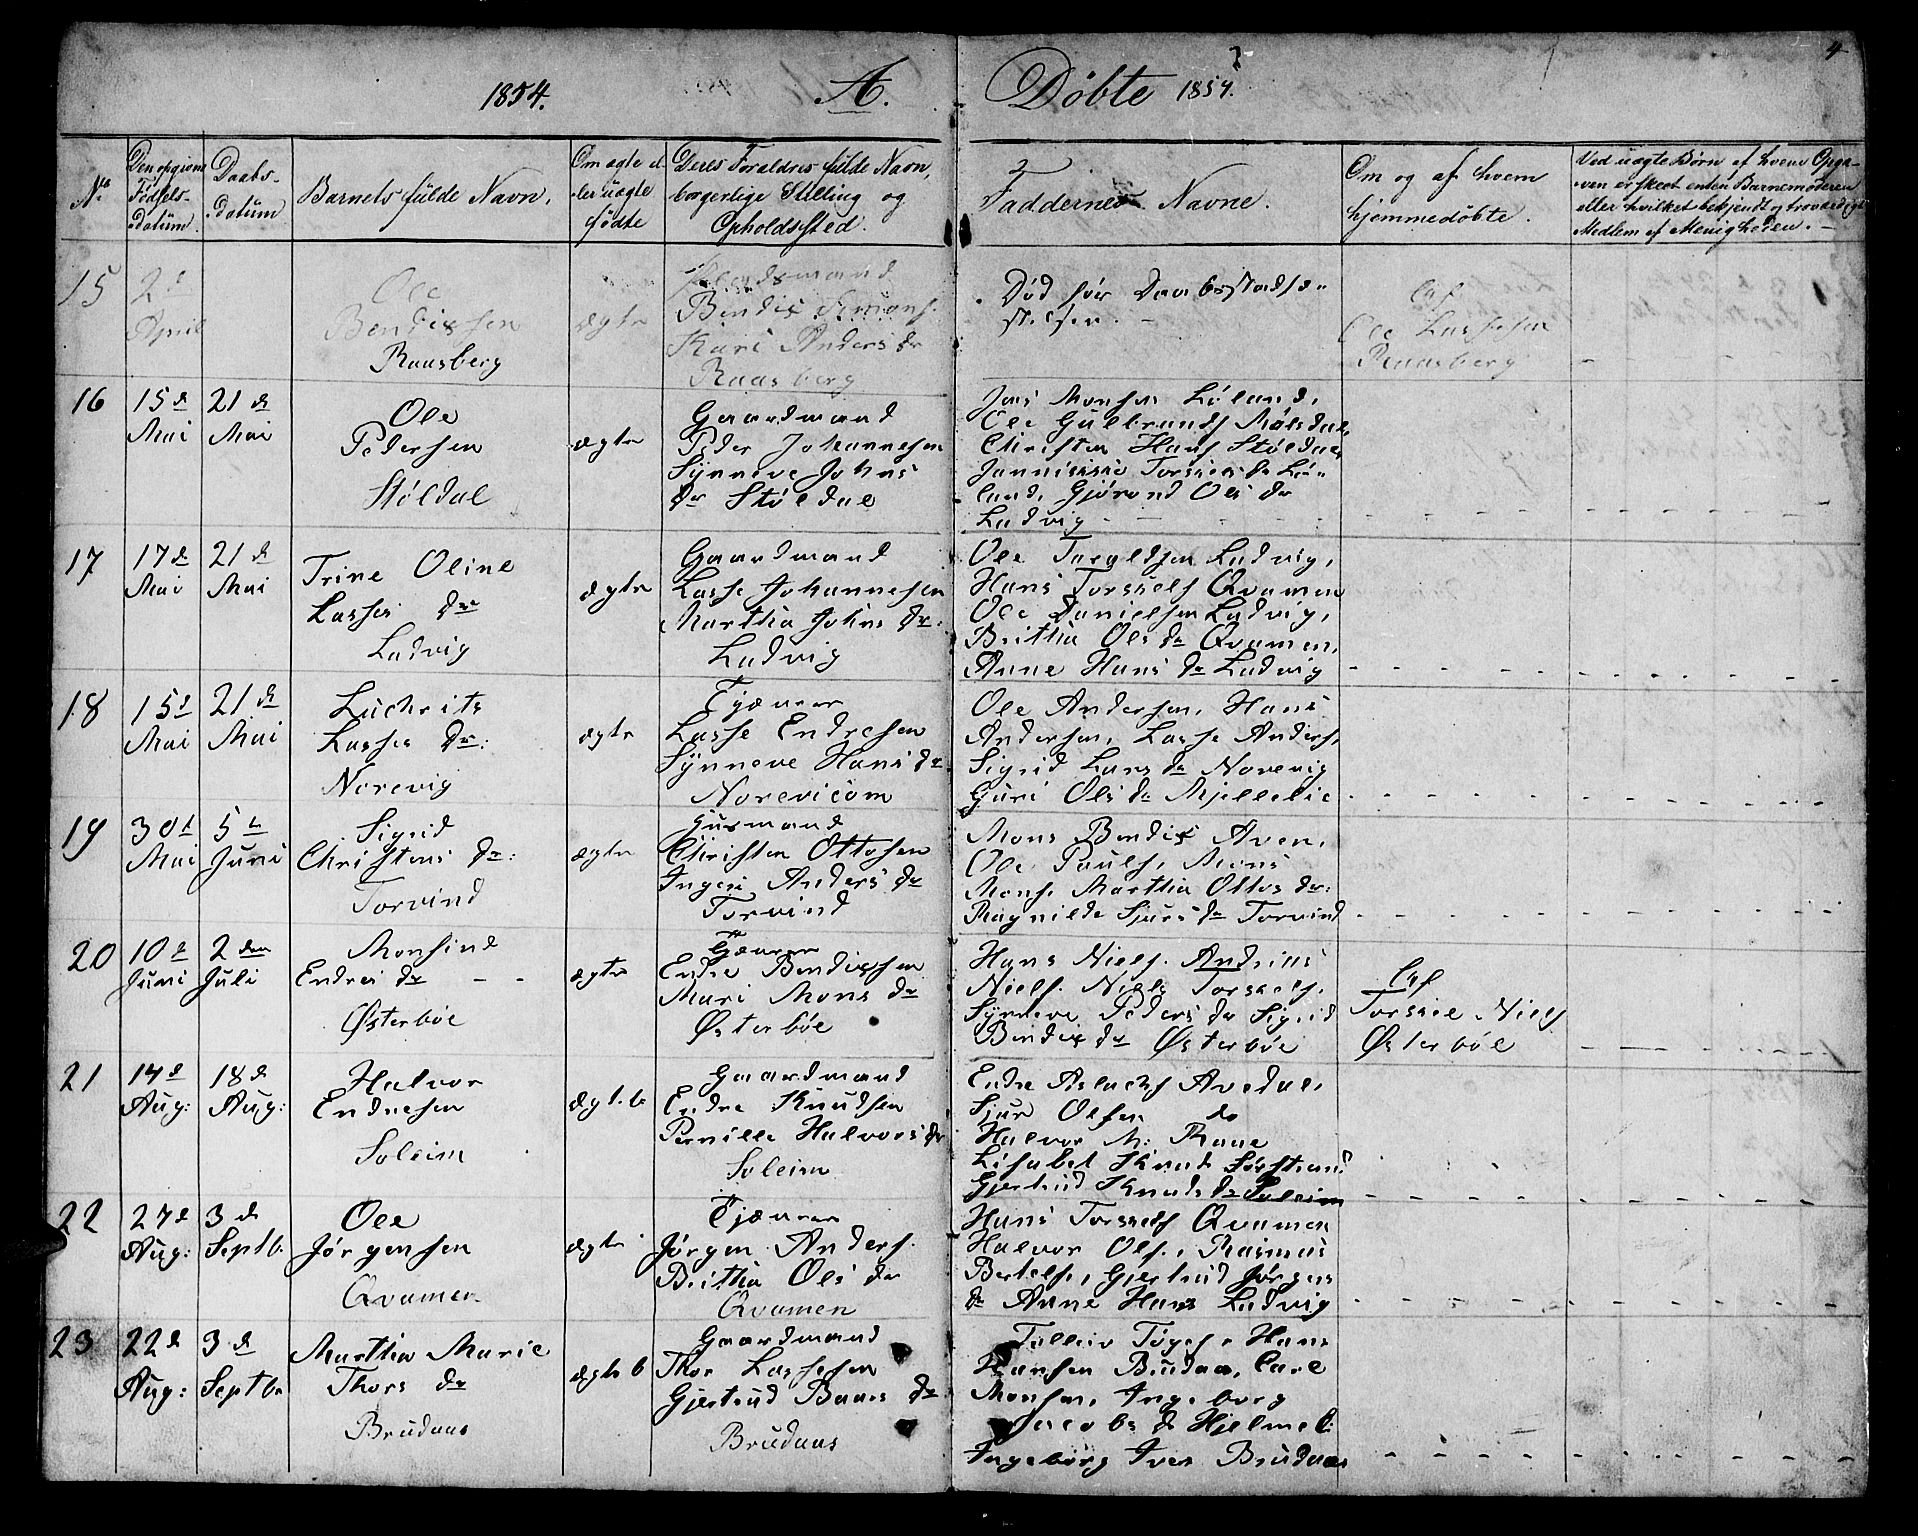 1854. A. Døbte 1854.
4
No.
Den opgivne Fødsels-datum.
Daabs-datum
Barnets fulde Navn.
Om ægte eller uægte fødte
Deres Forældres fulde Navn, borgerlige Stilling og Opholdssted.
Faddernes Navne.
Om og af hvem hjemmedøbte.
Ved uægte Børn af hvem Opga-
ven er skeet enten Barnemoderen
eller hvilket bekjendt og troværdigt
Medlem af Menigheden. -
15 2d April
Ole
Bendixsen
Raasberg
ægte
Bendix Simons.
Kari Anders dr
Raasberg
Død før Daabsstadfæ-
stelsen. -
af
Ole Lassesen
Raasberg
16 15d Mai 21d Mai
Ole
Pedersen
Støldal
ægte
Gaardmand
Peder Johannesen
Synneve Johns
dr Støldal
Jens Monsen Løland,
Ole Gulbrands Mølsdal,
Christen Hans Støldal,
Torkels dr Lø-
land, Gjørond Ols dr
Ladvig
17 17d Mai 21d Mai
Trine Oline
Lasses dr
Ladvig
ægte
Gaardmand
Lasse Johannesen
Martha Johns dr:
Ladvig
Ole Taraldsen Ladvig,
Hans Torkels Qvamen
Ole Danielsen Ladvig,
Brithia Ols dr Qvamen,
Anne Hans dr Ladvig
18 15d Mai 21d Mai
Luchrits
Lasses dr:
Norevig
ægte
Tjæner
Lasse Endresen
Synneve Hans dr
Norevigom
Ole Andersen, Hans
Andersen, Lasse Anders,
Sigrid Lars dr Norevig
Guri Ols dr Mjellelie
19 30d Mai 5te Juni
Sigrid
Christens dr:
Torvind
ægte
Husmand
Christen Ottosen
Inger Anders dr
Torvind
Mons Bendix Aven,
Ole Pauls, Mons
Mons. Martha Ottos dr:
Ragnilde Sjurs dr Torvind
20 10d Juni 2den Juli
Monsine
Endres dr
Østerbøe
ægte
Tjæner
Endre Bendixsen
Mari Mons dr
Østerbøe
Hans Niels. Andreas
Niels. Niels Torkels.
Synneve Peders dr Sigrid
Bendix dr Østerbøe
af
Torkel Niels
Østerbøe
21 14d Aug: 18d Aug:
Halvor
Endresen
Soleim
ægt. b
Gaardmand
Endre Knudsen
Pernille Halvors dr
Soleim
Endre Aslachs Avedal,
Sjur Olsen do
Halvor M:
Lisabet Knuds
Gjertrud Knuds dr Soleim
22 27d Aug: 3d Septb.
Ole
Jørgensen
Qvamen
ægte
Tjæner
Jørgen Anders.
Brithia Ols dr
Qvamen
Hans Torkels Qvamen
Halvor Ols., Rasmus
Bertels., Gjertrud Jørgens
dr Anne Hans Ladvig
23 22d Aug: 3d Septbr
Martha Marie
Thors dr
Brudaas
ægte b
Gaardmand
Thor Lassesen
Gjertrud Baars dr
Brudaas
Tolleiv Hans
Hansen Brudaas, Carl
Monsen, Ingeborg
Jacobs d Hjelme
Ingeborg Ivers Brudaas